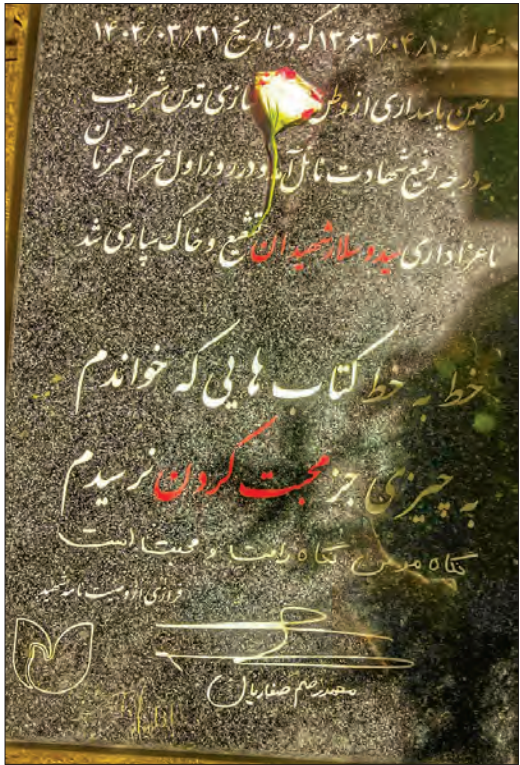 متولد ۱۳۶۳/۰۴/۱۰ که در تاریخ ۱۴۰۴/۰۳/۳۱
درحین پاسداری از وطن سازی قدس شریف
به درجه رفیع شهادت نائل آمد و در روز اول محرم همزمان
با عزاداری سید و سالار شهیدان تشییع و خاک سپاری شد
خط به خط کتاب هایی که خواندم
به چیزی جز محبت کردن نرسیدم
نگاه مومن نگاه رافت و محبت است
فرازی از وصیت نامه شهید
محمدرستم صفاریان